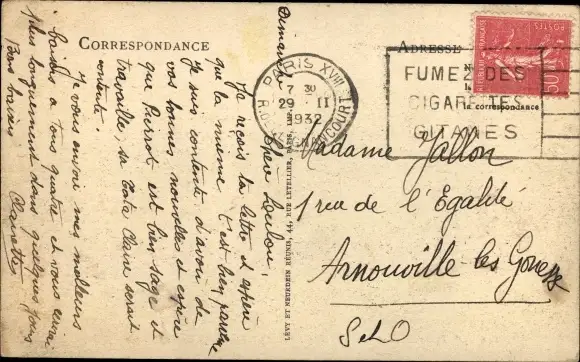 CORRESPONDANCE
ADRESSE
Dimanche
Cher Loulou,
Je reçois ta lettre et espère
que la mienne t'est bien parvenue
Je suis contente d'avoir de
vos bonnes nouvelles et espère
que Pierrot est bien sage et
travaille, sa Tata Claire serait
contente.
Je vous envoie mes meilleurs
baisers à tous quatre et vous écrirai
plus longuement dans quelques jours
Bons baisers
Clairette
LÉVY ET NEURDEIN RÉUNIS, 44, RUE LETELLIER, PARIS
PARIS XVIII
7 30
29 II
1932
FUMEZ DES
CIGARETTES
GITANES
POSTES
50
la correspondance
Madame Jallon
1 rue de l'Egalité
Arnouville les Gonesse
S et O